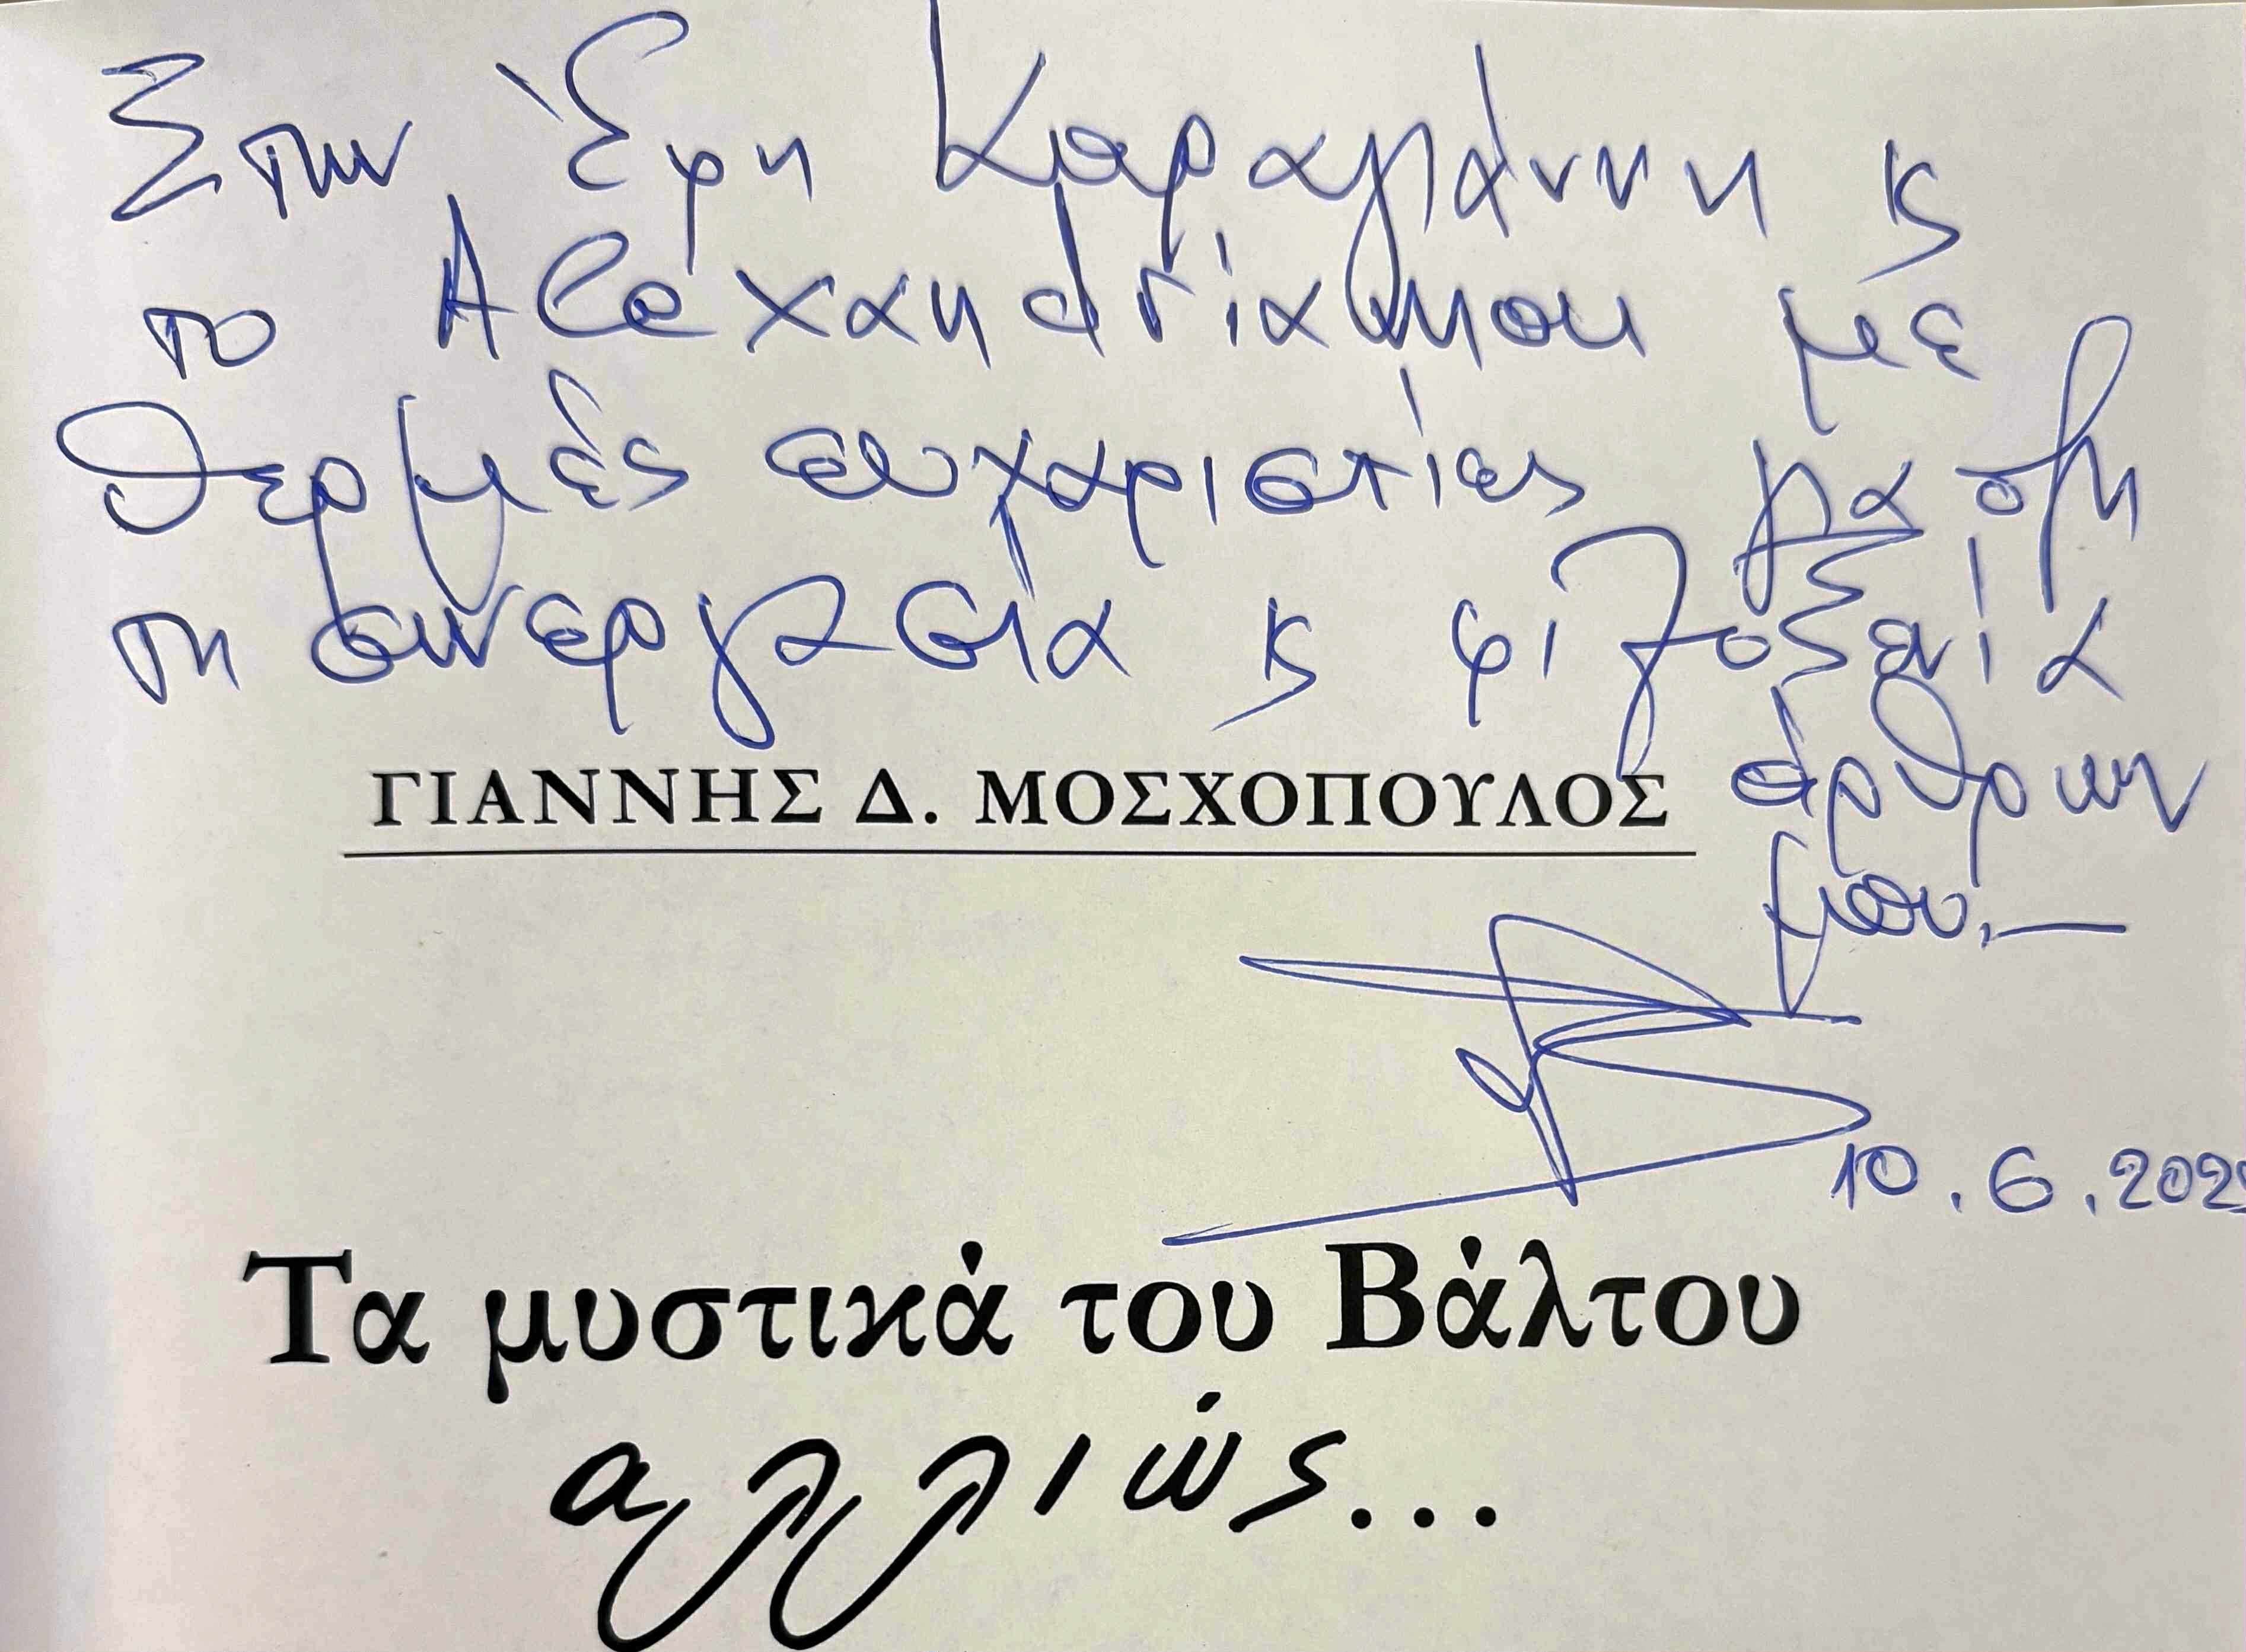 Στην Έφη Καραγιάννη κ
το Alexandriamou με
θερμές ευχαριστίες για όλη
τη συνεργασία κ φιλοξενία
άρθρων
μου.—
ΓΙΑΝΝΗΣ Δ. ΜΟΣΧΟΠΟΥΛΟΣ
10.6.202
Τα μυστικά του Βάλτου
αλλιώς...